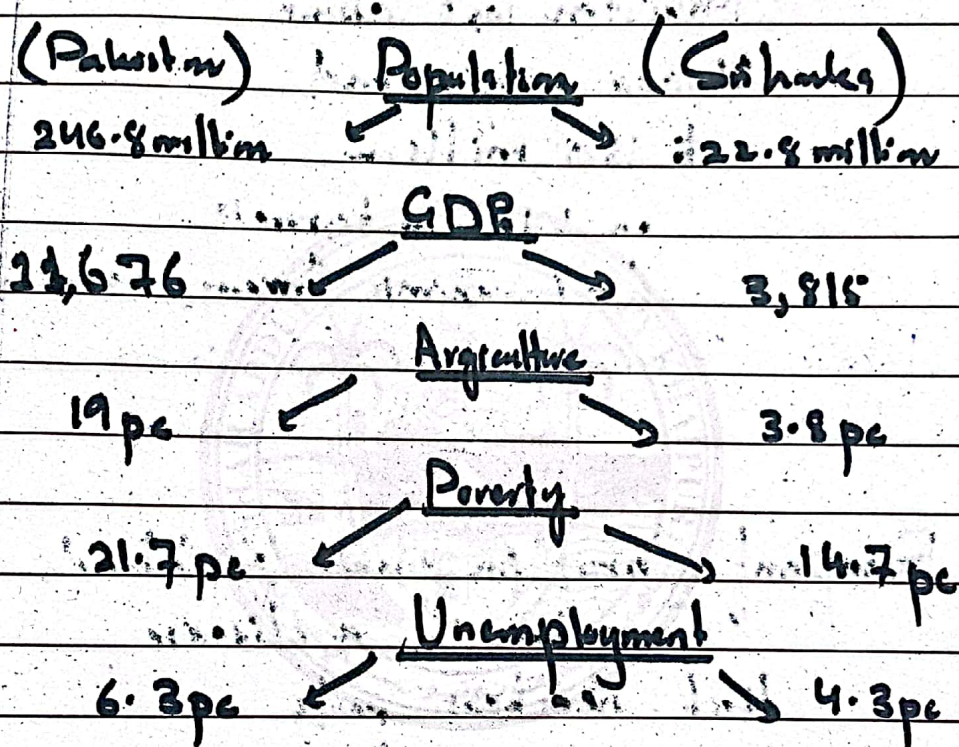 (Pakistan) Population (Sri Lanka)
246.8 million : 22.8 million
GDP
11,676 3,815
Argiculture
19 pc 3.8 pc
Poverty
21.7 pc 14.7 pc
Unemployment
6.3 pc 4.3 pc